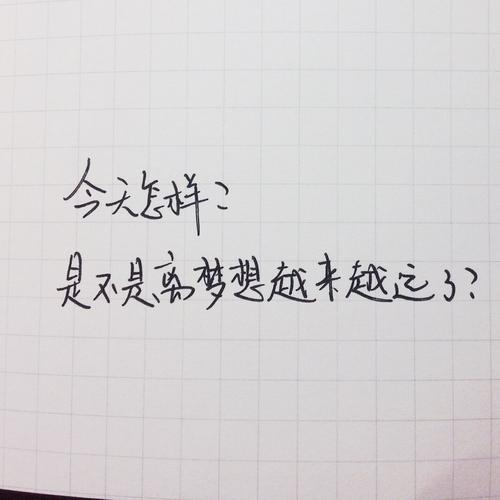 今天怎样？
是不是离梦想越来越远了？